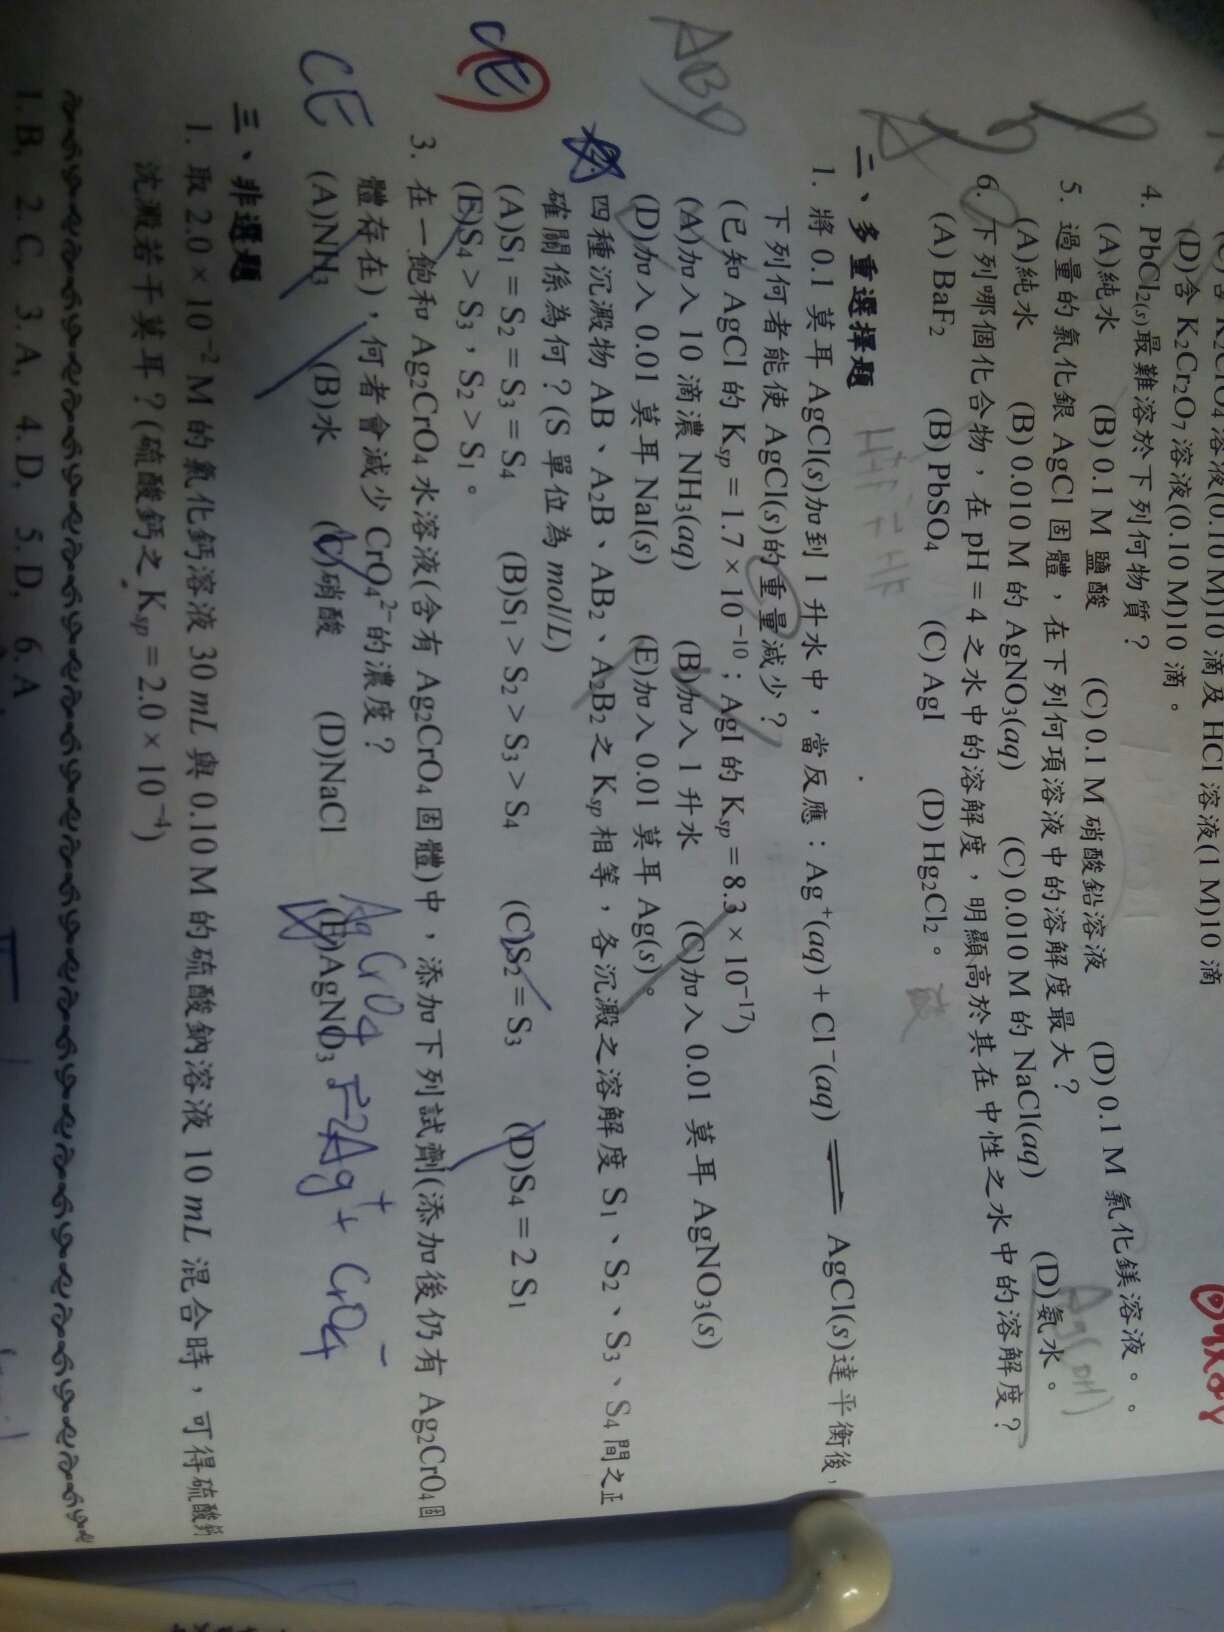 (D)含 K₂Cr₂O₇ 溶液(0.10 M)10 滴。
4. PbCl₂(s)最難溶於下列何物質?
(A)純水 (B) 0.1 M 鹽酸 (C) 0.1 M 硝酸鉛溶液 (D) 0.1 M 氯化鎂溶液。
5. 過量的氯化銀 AgCl 固體,在下列何項溶液中的溶解度最大?
(A)純水 (B) 0.010 M 的 AgNO₃(aq) (C) 0.010 M 的 NaCl(aq) (D)氨水。
6. 下列哪個化合物,在 pH = 4 之水中的溶解度,明顯高於其在中性之水中的溶解度?
(A) BaF₂ (B) PbSO₄ (C) AgI (D) Hg₂Cl₂。
二、多重選擇題
1. 將 0.1 莫耳 AgCl(s)加到 1 升水中,當反應:Ag⁺(aq) + Cl⁻(aq) ⇌ AgCl(s)達平衡後,
下列何者能使 AgCl(s)的重量減少?
(已知 AgCl 的 Ksp = 1.7 × 10⁻¹⁰;AgI 的 Ksp = 8.3 × 10⁻¹⁷)
(A)加入 10 滴濃 NH₃(aq) (B)加入 1 升水 (C)加入 0.01 莫耳 AgNO₃(s)
(D)加入 0.01 莫耳 NaI(s) (E)加入 0.01 莫耳 Ag(s)。
ABD
四種沉澱物 AB、A₂B、AB₂、A₂B₂ 之 Ksp 相等,各沉澱之溶解度 S₁、S₂、S₃、S₄ 間之正
確關係為何?(S 單位為 mol/L)
(A)S₁ = S₂ = S₃ = S₄ (B)S₁ > S₂ > S₃ > S₄ (C)S₂ = S₃ (D)S₄ = 2 S₁
(E)S₄ > S₃,S₂ > S₁。
3. 在一飽和 Ag₂CrO₄ 水溶液(含有 Ag₂CrO₄ 固體)中,添加下列試劑(添加後仍有 Ag₂CrO₄ 固
體存在),何者會減少 CrO₄²⁻ 的濃度?
(A)NH₃ (B)水 (C)硝酸 (D)NaCl (E)AgNO₃
CE
三、非選題
1. 取 2.0 × 10⁻² M 的氯化鈣溶液 30 mL 與 0.10 M 的硫酸鈉溶液 10 mL 混合時,可得硫酸鈣
沈澱若干莫耳?(硫酸鈣之 Ksp = 2.0 × 10⁻⁴)
1. B, 2. C, 3. A, 4. D, 5. D, 6. A